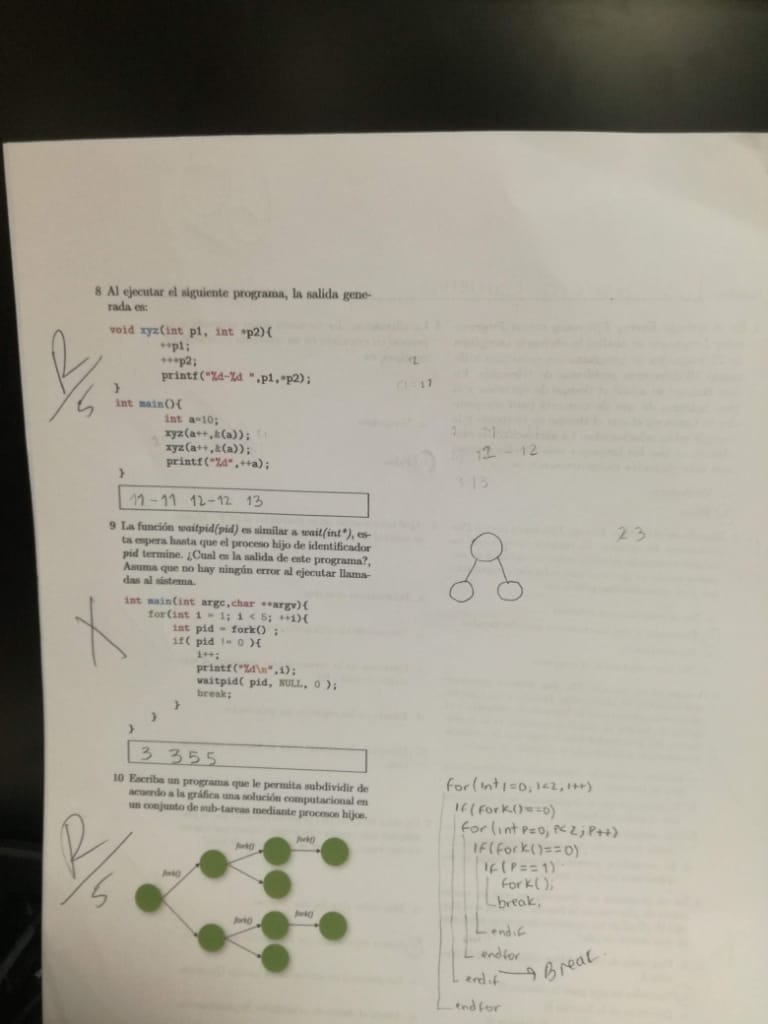 8 Al ejecutar el siguiente programa, la salida gene-
rada es:
void xyz(int p1, int *p2){
++p1;
++*p2;
printf("%d-%d ",p1,*p2);
}
int main(){
int a=10;
xyz(a++,&(a));
xyz(a++,&(a));
printf("%d",++a);
}
11-11 12-12 13
R/S
12
11
12 - 12
9 La función waitpid(pid) es similar a wait(int*), es-
ta espera hasta que el proceso hijo de identificador
pid termine. ¿Cual es la salida de este programa?,
Asuma que no hay ningún error al ejecutar llama-
das al sistema.
int main(int argc,char **argv){
for(int i = 1; i < 5; ++i){
int pid = fork() ;
if( pid != 0 ){
i++;
printf("%d\n",i);
waitpid( pid, NULL, 0 );
break;
}
}
}
3 3 5 5
X
2 3
10 Escriba un programa que le permita subdividir de
acuerdo a la gráfica una solución computacional en
un conjunto de sub-tareas mediante procesos hijos.
R/S
fork()
fork()
fork()
fork()
fork()
for(int i=0, i<2, i++)
if(fork()==0)
for(int P=0; P<2; P++)
if(fork()==0)
if(P==1)
fork();
break,
endif
endfor
endif → Break
endfor